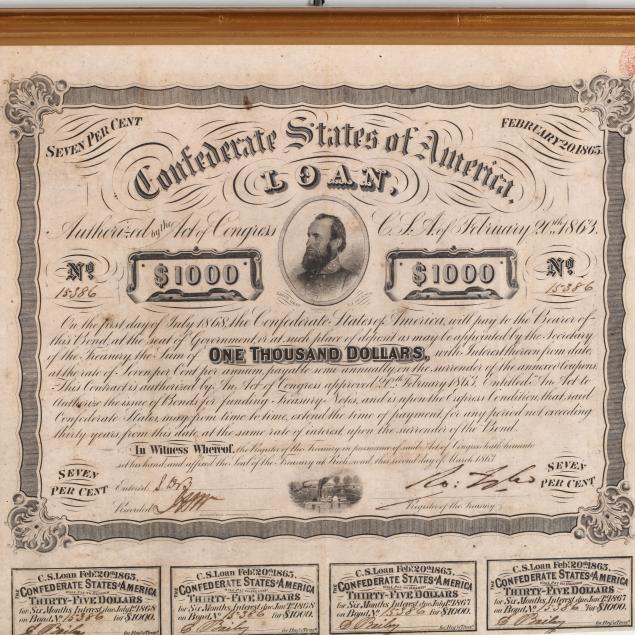 SEVEN PER CENT
FEBRUARY 20, 1863.
Confederate States of America,
LOAN,
Authorized by the Act of Congress C.S.A. of February 20th, 1863.
No
$1000
$1000
No
15386
15386
On the first day of July 1868, the Confederate States of America, will pay to the Bearer of
this Bond, at the seat of Government, or at such place of deposit as may be appointed by the Secretary
of the Treasury, the Sum of ONE THOUSAND DOLLARS, with Interest thereon from date,
at the rate of Seven per Cent per annum, payable semi annually on the surrender of the annexed Coupons.
This Contract is authorized by An Act of Congress approved 20th February 1863, Entitled "An Act to
Authorize the issue of Bonds for funding Treasury Notes, and is upon the Express Condition, that said
Confederate States, may from time to time, extend the time of payment for any period not exceeding
thirty years, from this date, at the same rate of interest, upon the surrender of the Bond.
In Witness Whereof, the Register of the Treasury in pursuance of said Act of Congress hath hereunto
set his hand, and affixed the Seal of the Treasury at Richmond, this second day of March 1863
SEVEN PER CENT
Entered
Recorded
Ro: Tyler
Register of the Treasury
SEVEN PER CENT
C.S. Loan Feb. 20th 1863.
CONFEDERATE STATES OF AMERICA
WILL PAY TO BEARER
THIRTY-FIVE DOLLARS
for Six Months Interest due July 1st 1868
on Bond No 15386 for $1000.
for Reg'r Treas'
C.S. Loan Feb. 20th 1863.
CONFEDERATE STATES OF AMERICA
WILL PAY TO BEARER
THIRTY-FIVE DOLLARS
for Six Months Interest due Jan'y 1st 1868
on Bond No 15386 for $1000.
for Reg'r Treas'
C.S. Loan Feb. 20th 1863.
CONFEDERATE STATES OF AMERICA
WILL PAY TO BEARER
THIRTY-FIVE DOLLARS
for Six Months Interest due July 1st 1867
on Bond No 15386 for $1000.
for Reg'r Treas'
C.S. Loan Feb. 20th 1863.
CONFEDERATE STATES OF AMERICA
WILL PAY TO BEARER
THIRTY-FIVE DOLLARS
for Six Months Interest due Jan'y 1st 1867
on Bond No 15386 for $1000.
for Reg'r Treas'